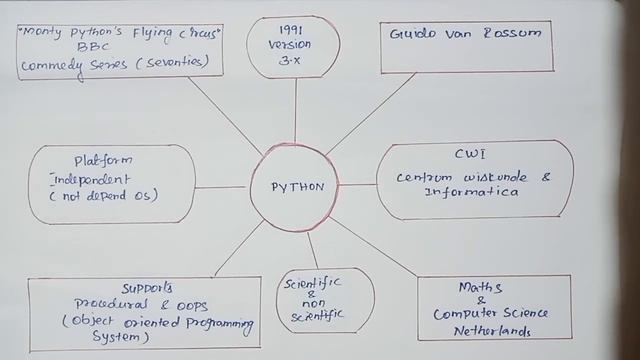 "Monty Python's Flying Circus"
BBC
Commedy Series (Seventies)
1991
Version
3.x
Guido Van Rossum
Platform
Independent
(not depend OS)
PYTHON
CWI
Centrum wiskunde &
Informatica
Supports
Procedural & OOPS
(Object oriented Programming
System)
Scientific
&
non
Scientific
Maths
&
Computer Science
Netherlands